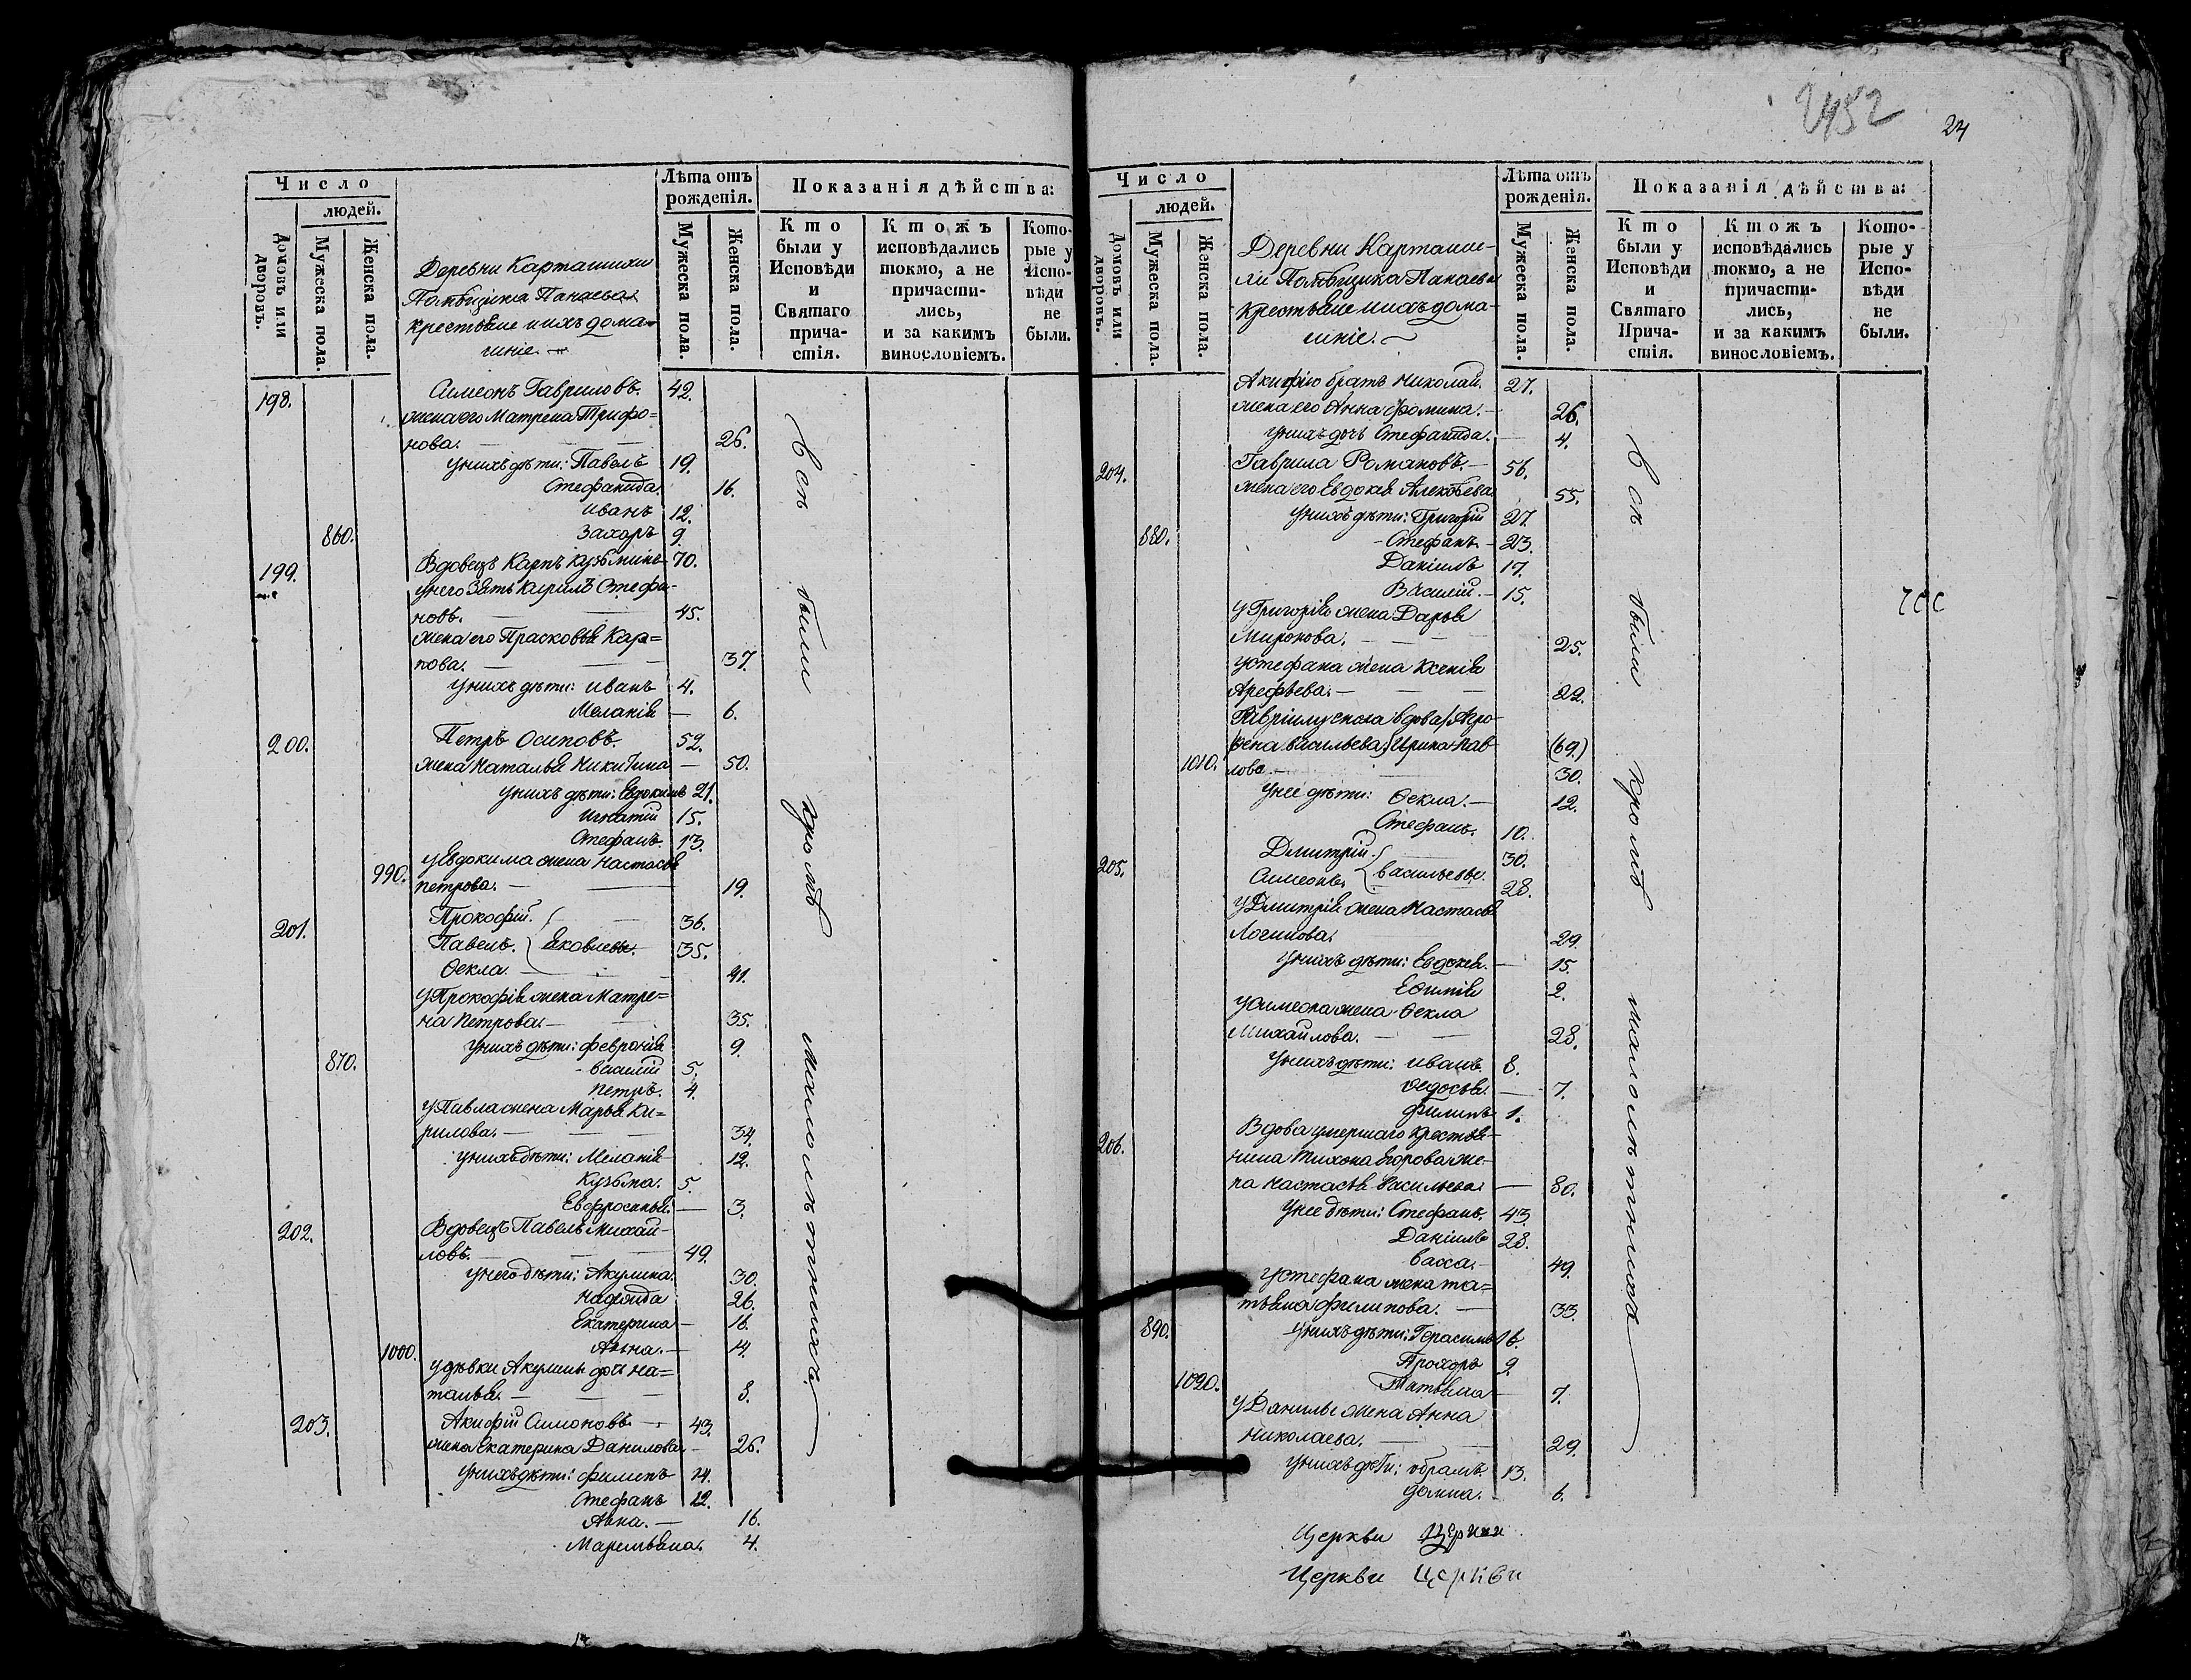 Число
людей.
Домовъ или дворовъ.
Мужеска пола.
Женска пола.
Деревни Карташихи
Помѣщика Панаева
крестьяне и ихъ дома-
шніе.
Лѣта отъ рожденія.
Мужеска пола.
Женска пола.
Показанія дѣйства:
Кто были у Исповѣди и Святаго прича-стія.
Ктожъ исповѣдались токмо, а не причасти-лись, и за какимъ винословіемъ.
Кото-рые у Испо-вѣди не были.
198. Симеонъ Гавриловъ. 42.
жена его Матрена Трифо=
нова. — 26.
у нихъ дѣти: Павелъ 19.
Стефанида. 16.
Иванъ 12.
860. Захаръ 9.
199. Вдовецъ Карпъ Кузьминъ 70.
у него зять Кирилъ Стефа-
новъ. — 45.
жена его Прасковья Кар=
пова. — 37.
у нихъ дѣти: Иванъ 4.
Меланія — 6.
200. Петръ Осиповъ. 52.
жена Наталья Никитина — 50.
у нихъ дѣти: Евдокимъ 21.
Игнатій 15.
Стефанъ. 13.
у Евдокима жена Настасья
990. Петрова. — 19.
201. Прокофій. 36.
Павелъ. Яковлевы. 35.
Ѳекла. — 41.
у Прокофія жена Матре=
на Петрова. — 35.
у нихъ дѣти: Февронія 9.
870. Василій 5.
Петръ. 4.
у Павла жена Марья Ки=
рилова. — 34.
у нихъ дѣти: Меланія 12.
Кузьма. 5.
Евфросинья. — 3.
202. Вдовецъ Павелъ Михай-
ловъ. — 49.
у него дѣти: Акулина. 30.
26.
Екатерина — 16.
1000. Анна. — 14.
у дѣвки Акулины дочь На=
талья. — 8.
203. Акифій Симоновъ — 43.
жена Екатерина Данилова. — 26.
у нихъ дѣти: Филипъ 14.
Стефанъ 12.
Анна. — 16.
Маремьяна. 4.
Всѣ были кромѣ малолѣтнихъ.
2452
24
Число
людей.
Домовъ или дворовъ.
Мужеска пола.
Женска пола.
Деревни Карташи-
хи Помѣщика Панаева
крестьяне и ихъ дома-
шніе.
Лѣта отъ рожденія.
Мужеска пола.
Женска пола.
Показанія дѣйства:
Кто были у Исповѣди и Святаго Прича-стія.
Ктожъ исповѣдались токмо, а не причасти-лись, и за какимъ винословіемъ.
Кото-рые у Испо-вѣди не были.
Акифію братъ Николай. 27.
жена его Анна Фомина. — 26.
у нихъ дочь Стефанида. — 4.
204. Гаврила Романовъ. — 56.
жена его Евдокія Алексѣева. 55.
у нихъ дѣти: Григорій 27.
880. Стефанъ — 23.
Даніилъ 17.
Василій. — 15.
у Григорія жена Дарья
Миронова. — 25.
у Стефана жена Ксенія
Арефьева. — 22.
вдова Агро-
фена Васильева Ирина Пав- (69.)
1010. лова. — 30.
у нее дѣти: Ѳекла. — 12.
Стефанъ. 10.
205. Дмитрій. 30.
Симеонъ. Васильевы. 28.
у Дмитрія жена Настасья
Логинова. 29.
у нихъ дѣти: Евдокія. — 15.
Ефимія 2.
у Симеона жена Ѳекла
Михайлова. — 28.
у нихъ дѣти: Иванъ 8.
Ѳедосья. — 7.
Филипъ 1.
206. Вдова умершаго крестья-
нина Тихона Егорова же-
на Настасья Васильева. — 80.
у нее дѣти: Стефанъ. 43.
Даніилъ 28.
Васса. — 49.
у Стефана жена Та=
тьяна Филипова. — 33.
890. у нихъ дѣти: Герасимъ 16.
Прохоръ 9.
1020. Татьяна — 7.
у Данилы жена Анна
Николаева. — 29.
у нихъ дѣти: Абрамъ. 13.
Домна. — 6.
Всѣ были кромѣ малолѣтнихъ
Церкви Церкви
Церкви Церкви